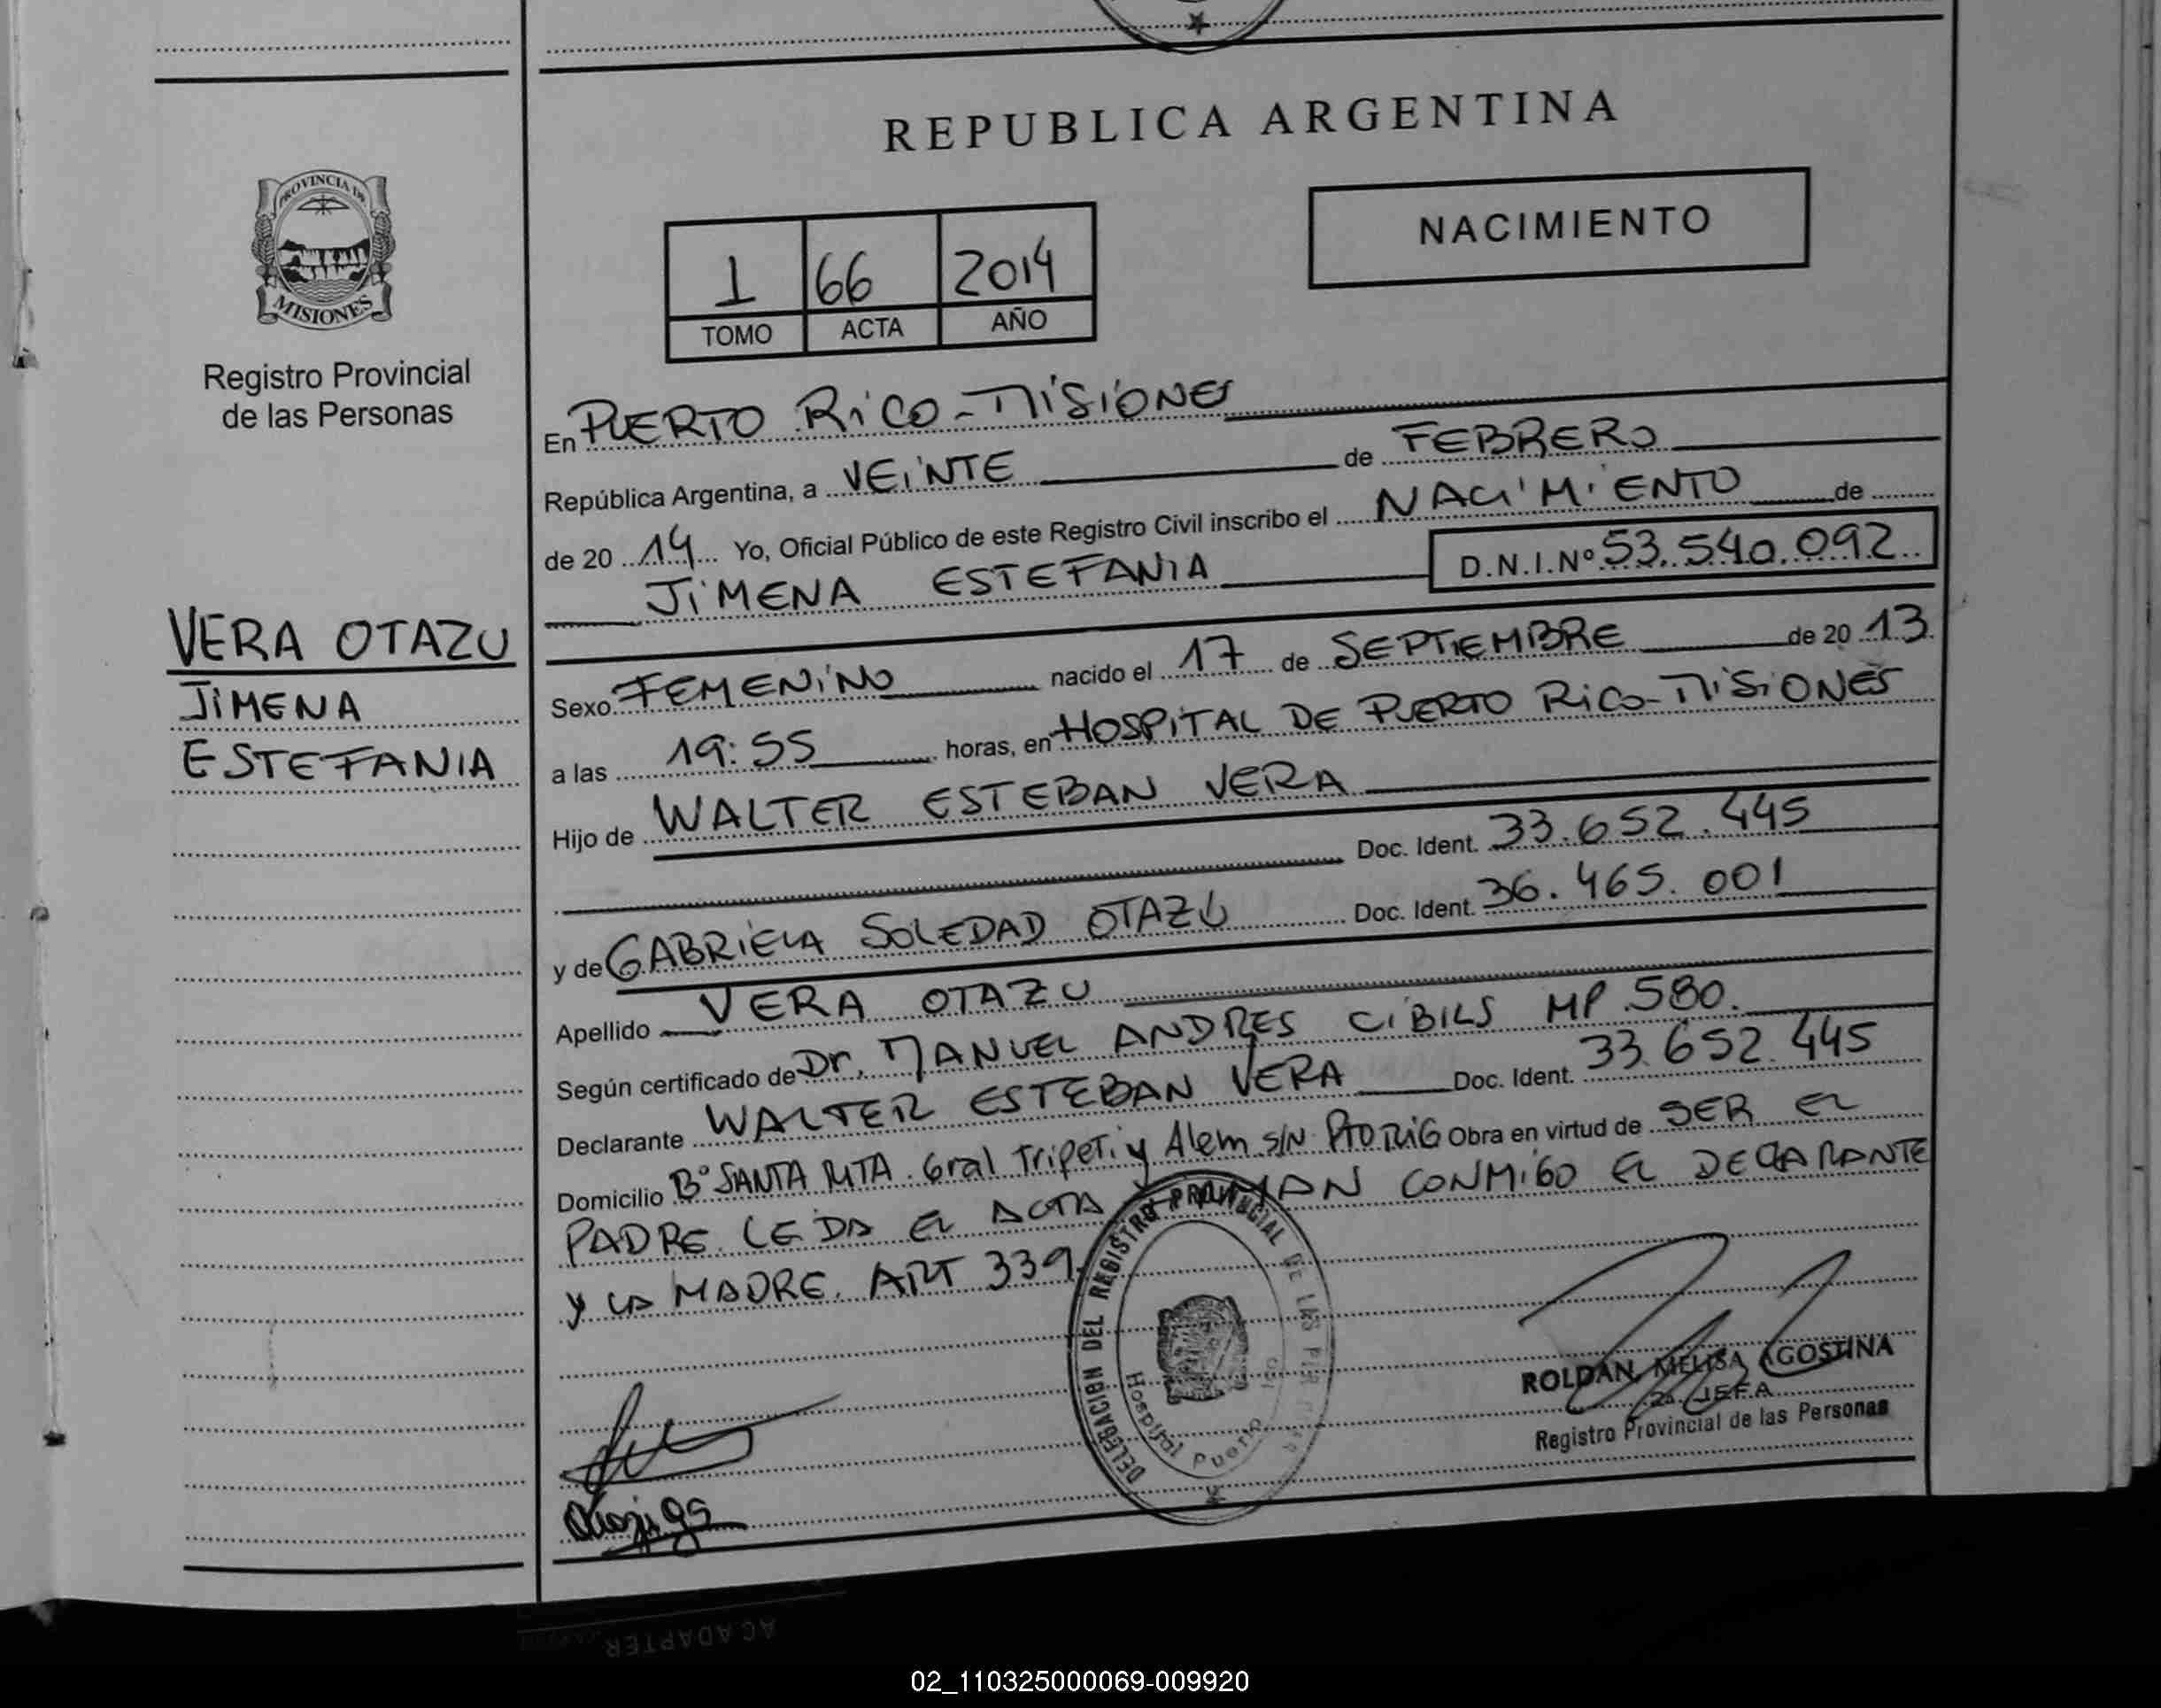 REPUBLICA ARGENTINA
NACIMIENTO
1 66 2014
TOMO ACTA AÑO
PROVINCIA DE
MISIONES
Registro Provincial
de las Personas
VERA OTAZU
JIMENA
ESTEFANIA
En PUERTO RICO - MISIONES
República Argentina, a VEINTE de FEBRERO
de 20 14 Yo, Oficial Público de este Registro Civil inscribo el NACIMIENTO de
JIMENA ESTEFANIA D.N.I.Nº 53.540.092
Sexo FEMENINO nacido el 17 de SEPTIEMBRE de 20 13
a las 19:55 horas, en HOSPITAL DE PUERTO RICO - MISIONES
Hijo de WALTER ESTEBAN VERA
Doc. Ident. 33.652.445
y de GABRIELA SOLEDAD OTAZÚ Doc. Ident. 36.465.001
Apellido VERA OTAZU
Según certificado de Dr. MANUEL ANDRES CIBILS MP 580.
Declarante WALTER ESTEBAN VERA Doc. Ident. 33.652.445
Domicilio Bº SANTA RITA. Gral Tripeti y Alem S/N Obra en virtud de SER EL
PADRE. LEIDA EL ACTA CONMIGO EL DECLARANTE
Y LA MADRE. ART 339.
DELEGACION DEL REGISTRO PROVINCIAL DE LAS
Hospital Puerto
ROLDAN, MELISA AGOSTINA
2a. JEFA
Registro Provincial de las Personas
AC ADAPTER
02_110325000069-009920